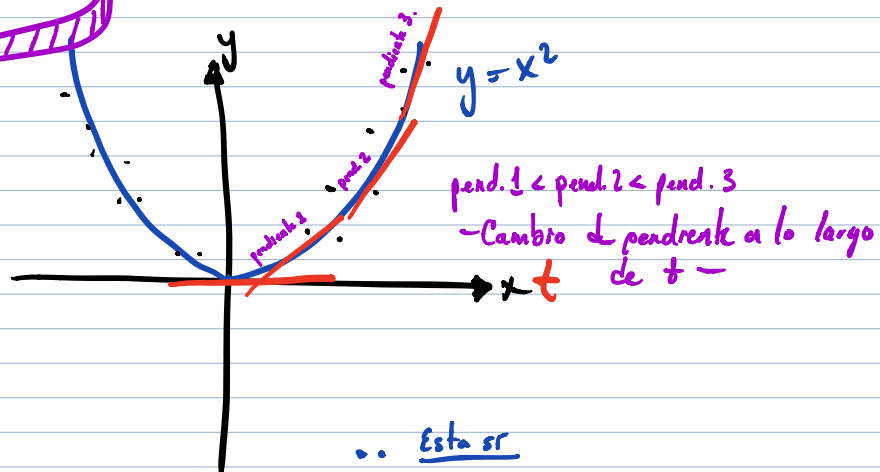 y
pendiente 3.
y = x²
pend. 2
pend. 1 < pend. 2 < pend. 3
pendiente 1
- Cambio d pendiente a lo largo
de t -
x t
Esta sr